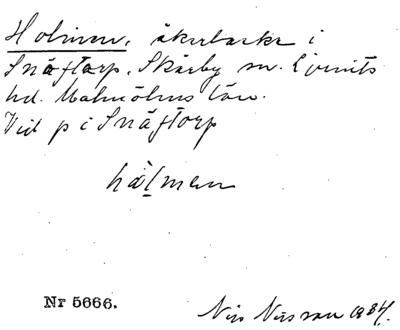 Holmen, åkerbacke i
Snäftorp, Skårby sn. Ljunits
hd. Malmöhus län.
Vid p i Snäftorp
hålmen
Nr 5666.
Nils Nilsson 1934.